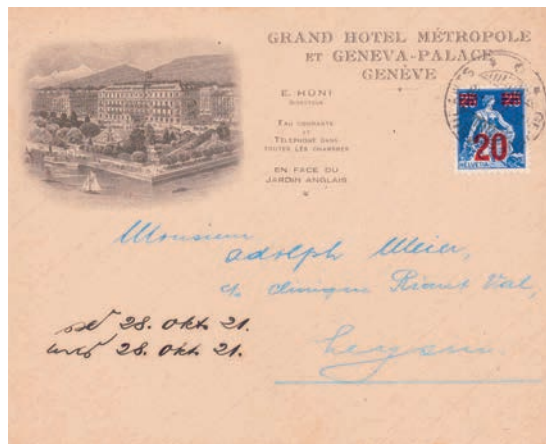 GRAND HOTEL MÉTROPOLE
ET GENEVA-PALACE
GENÈVE
E. HÜNI
DIRECTEUR
EAU COURANTE
ET
TÉLÉPHONE DANS
TOUTES LES CHAMBRES
EN FACE DU
JARDIN ANGLAIS
25 25
20
HELVETIA
Monsieur
Adolph Meier,
c/o Clinique Riant Val,
Leysin
28. Okt. 21.
28. Okt. 21.